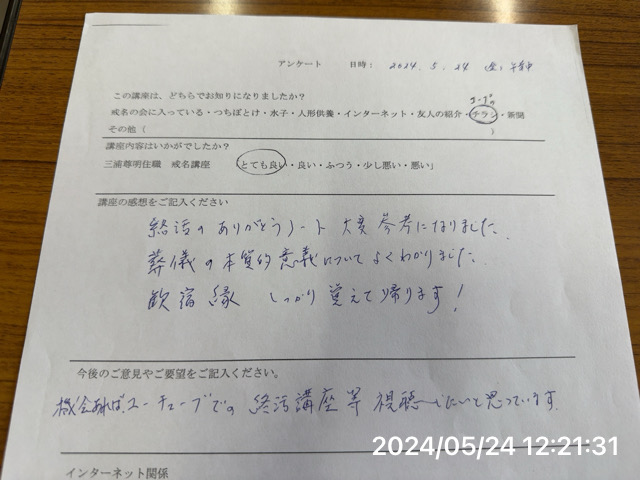 アンケート 日時： 2024. 5. 24 (金) 午前
この講座は、どちらでお知りになりましたか？
コープの
戒名の会に入っている・つちぼとけ・水子・人形供養・インターネット・友人の紹介・チラシ・新聞
その他（ ）
講座内容はいかがでしたか？
三浦尊明住職 戒名講座 「とても良い・良い・ふつう・少し悪い・悪い」
講座の感想をご記入ください
終活のありがとうノート 大変参考になりました。
葬儀の本質的意義についてよくわかりました。
歓 宿 縁 しっかり覚えて帰ります！
今後のご意見やご要望をご記入ください。
機会あれば、ユーチューブでの終活講座等視聴したいと思っています。
インターネット関係
2024/05/24 12:21:31